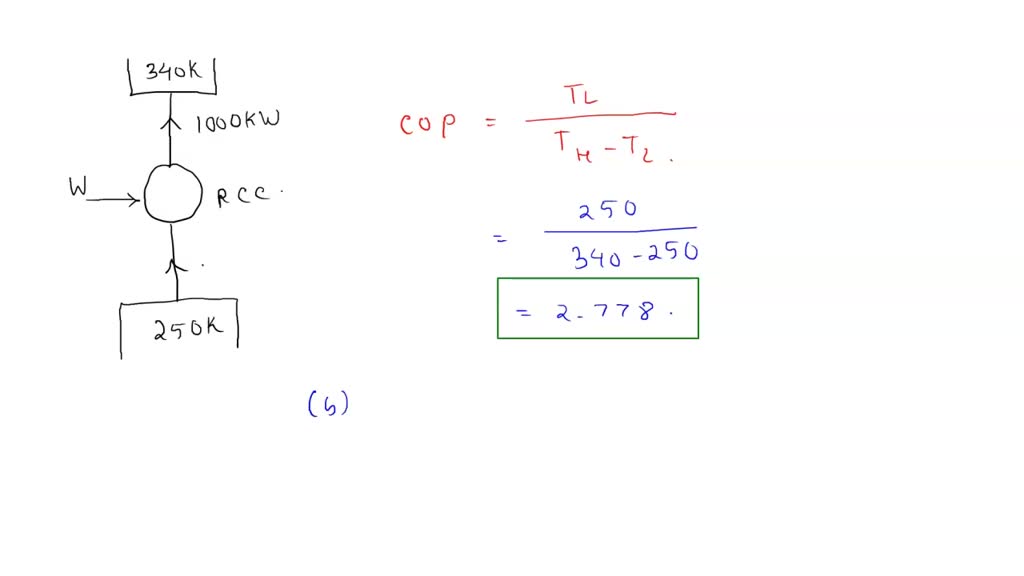 340K
1000KW
W
RCC.
250K
COP = TL / TH - TL.
= 250 / 340 - 250
= 2.778.
(b)